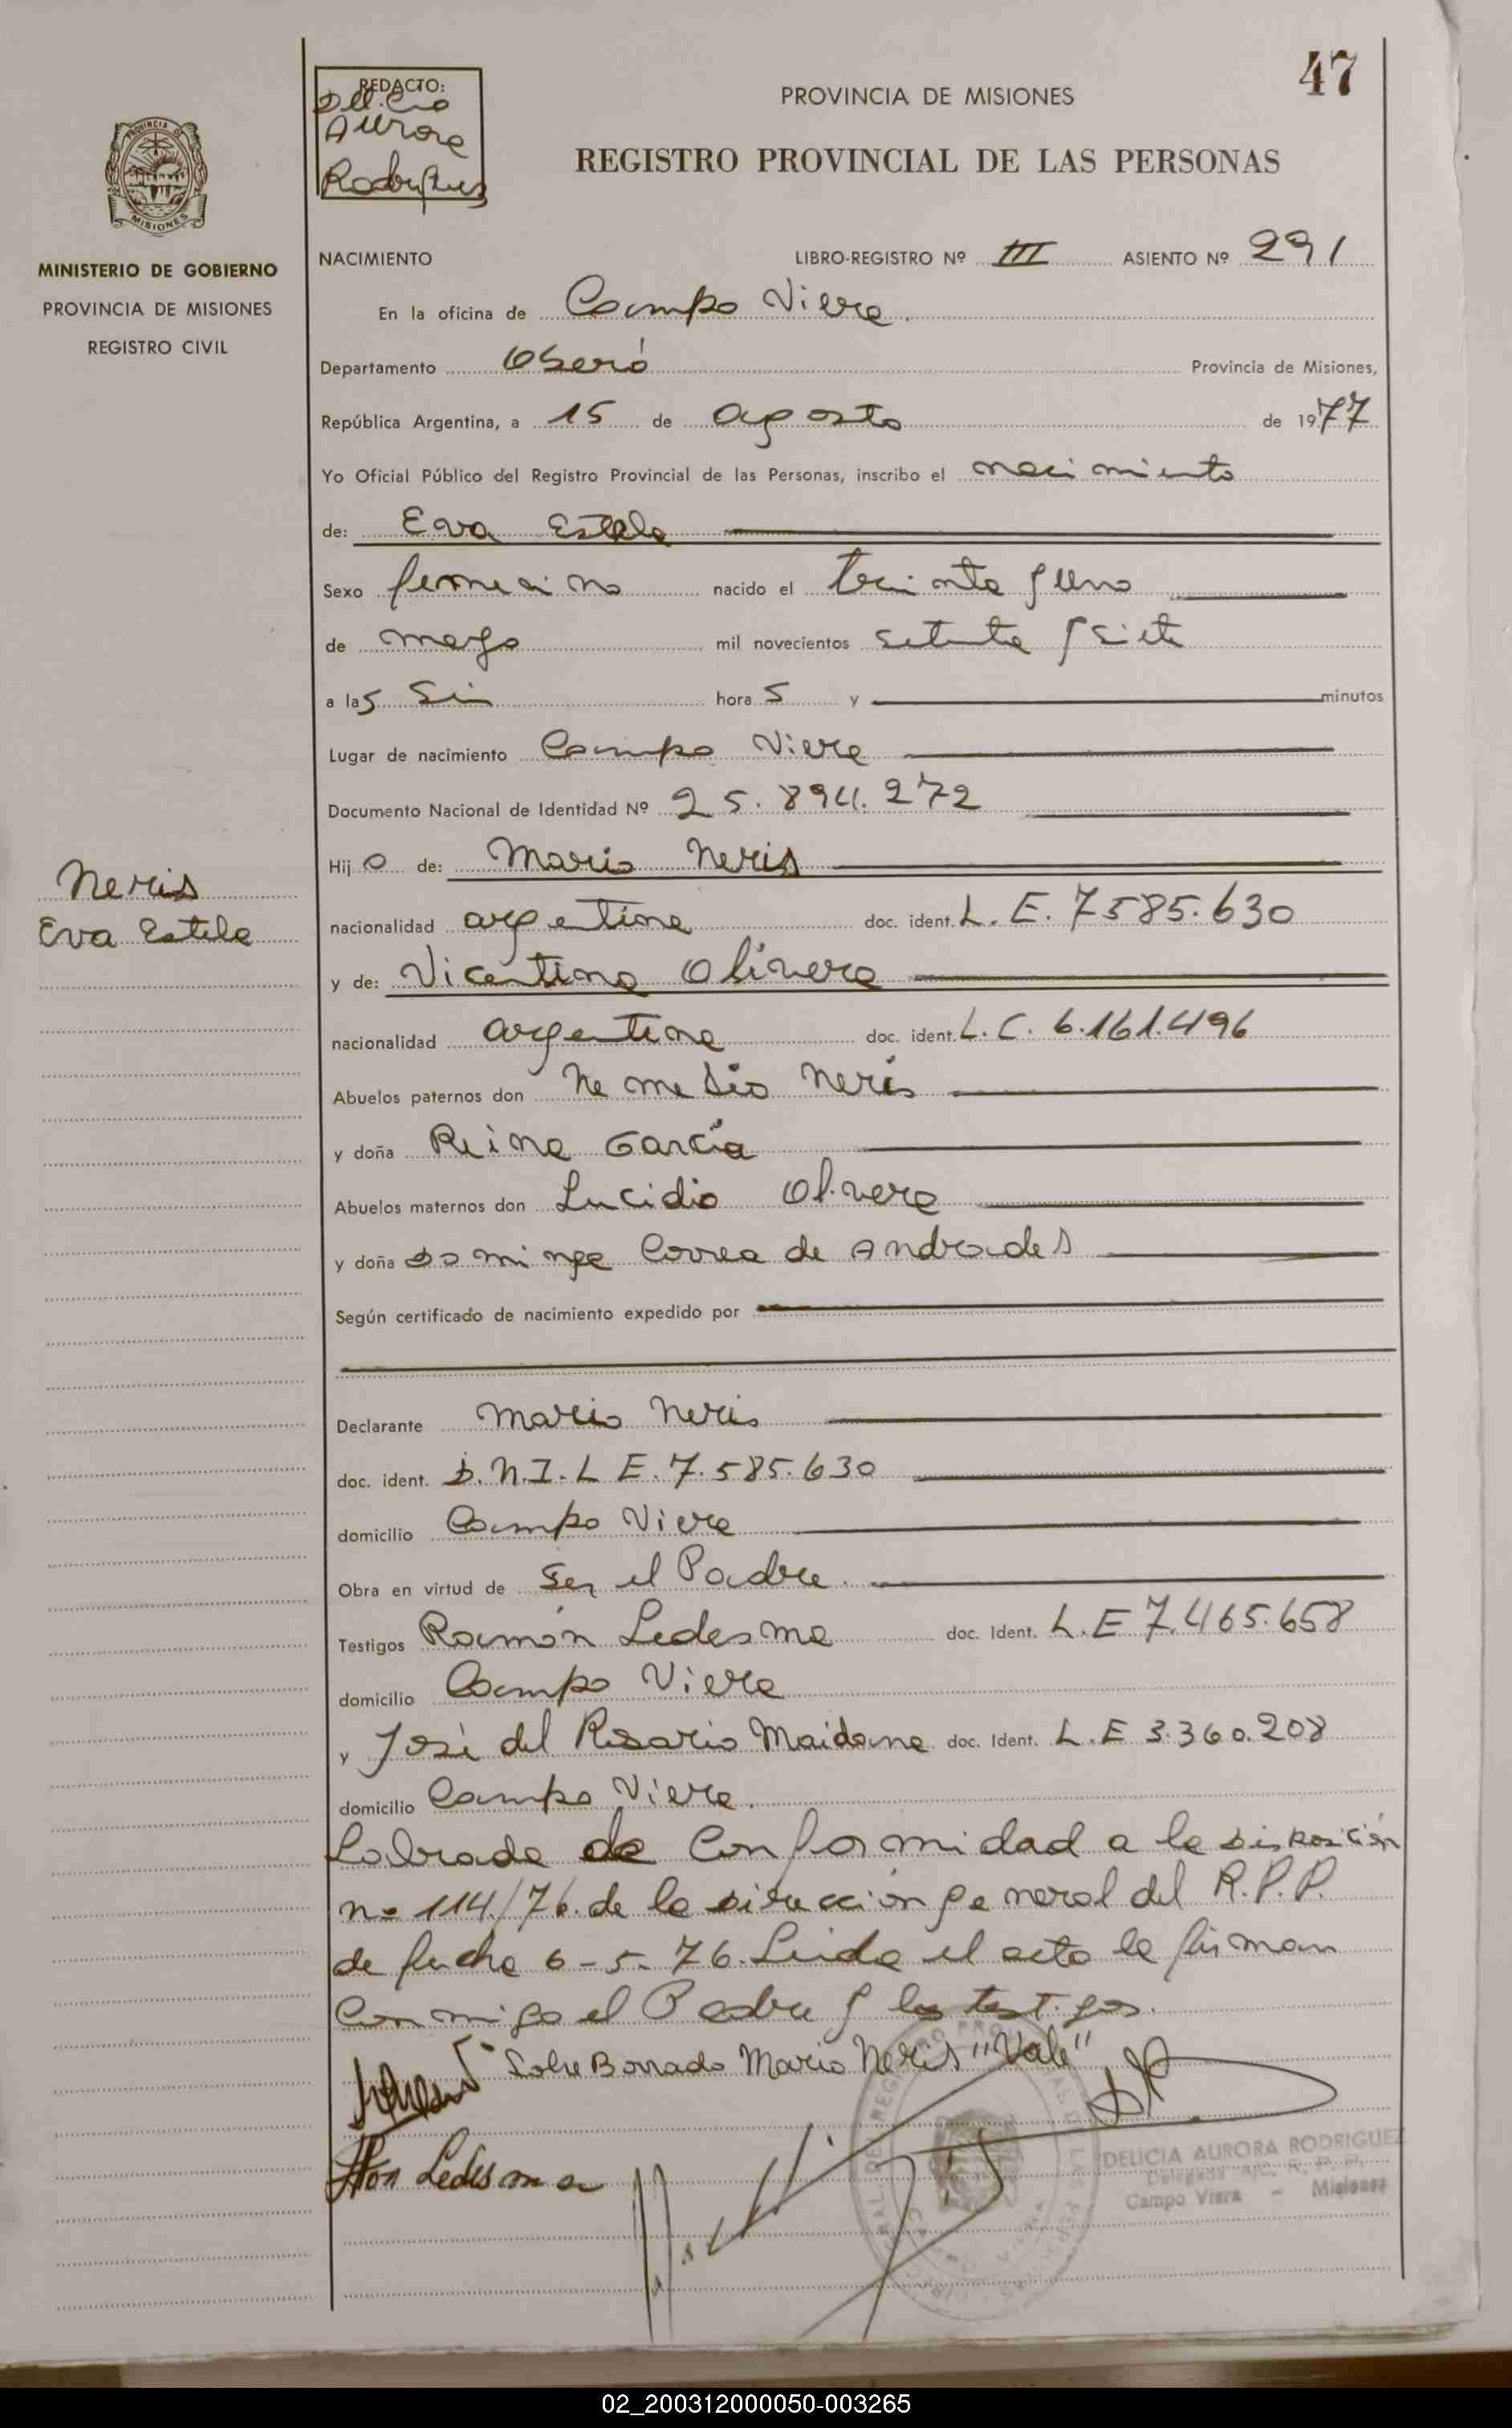 47
REDACTO:
Delicia
Aurora
Rodriguez
PROVINCIA DE MISIONES
REGISTRO PROVINCIAL DE LAS PERSONAS
MINISTERIO DE GOBIERNO
PROVINCIA DE MISIONES
REGISTRO CIVIL
NACIMIENTO LIBRO-REGISTRO Nº III ASIENTO Nº 291
En la oficina de Campo Viera.
Departamento Oberá Provincia de Misiones,
República Argentina, a 15 de agosto de 1977
Yo Oficial Público del Registro Provincial de las Personas, inscribo el nacimiento
de: Eva Estela
Sexo femenino nacido el treinta y uno
de mayo mil novecientos setenta y siete
a las seis hora s y minutos
Lugar de nacimiento Campo Viera
Documento Nacional de Identidad Nº 25.894.272
Hij o de: Mario Neris
Neris
Eva Estela
nacionalidad argentina doc. ident. L. E. 7585.630
y de: Vicentina Olivera
nacionalidad argentina doc. ident. L. C. 6.161.496
Abuelos paternos don Nemesio Neris
y doña Reina García
Abuelos maternos don Lucidio Olivera
y doña Dominga Correa de Andrades
Según certificado de nacimiento expedido por
Declarante Mario Neris
doc. ident. D.N.I. L E. 7.585.630
domicilio Campo Viera
Obra en virtud de ser el Padre.
Testigos Ramón Ledesma doc. Ident. L. E 7.465.658
domicilio Campo Viera
y José del Rosario Maidana doc. Ident. L. E 3.360.208
domicilio Campo Viera.
Labrada de Conformidad a la Disposición
nº 114/76. de la Dirección general del R.P.P.
de fecha 6-5-76. Leida el acta la firman
Conmigo el Padre y los testigos.
Sobre Borrado Mario Neris "Vale"
Ledesma
DELICIA AURORA RODRIGUEZ
Delegada R. P. P.
Campo Viera - Misiones
02_200312000050-003265